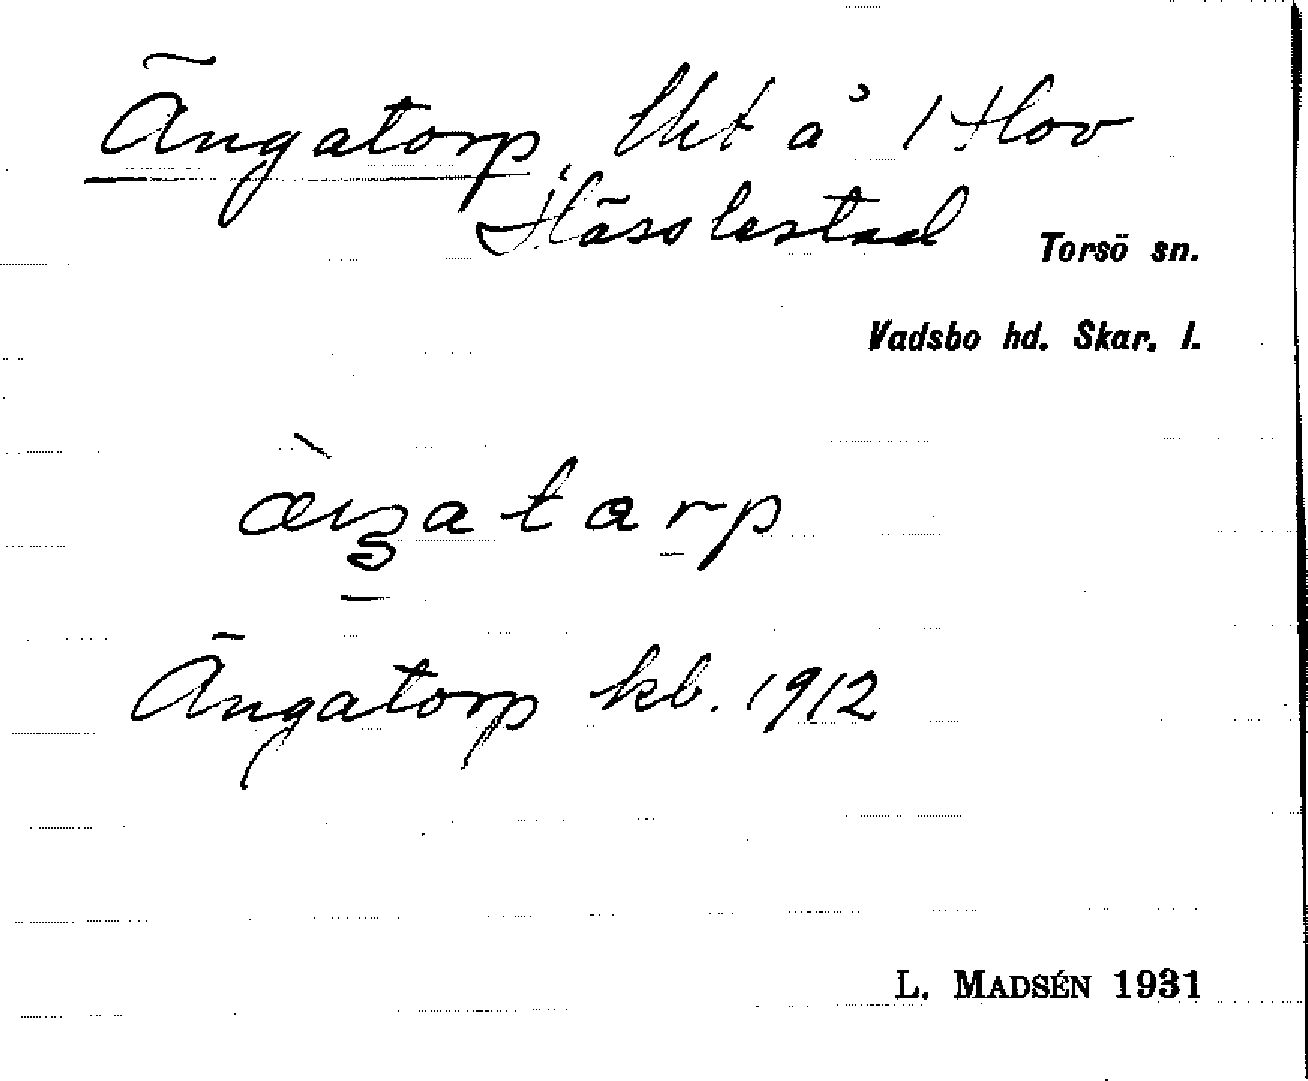 Ängatorp, lht å 1 Hov
Hässlestad
Torsö sn.
Vadsbo hd. Skar. l.
Ängatorp kb. 1912
L. MADSÉN 1931